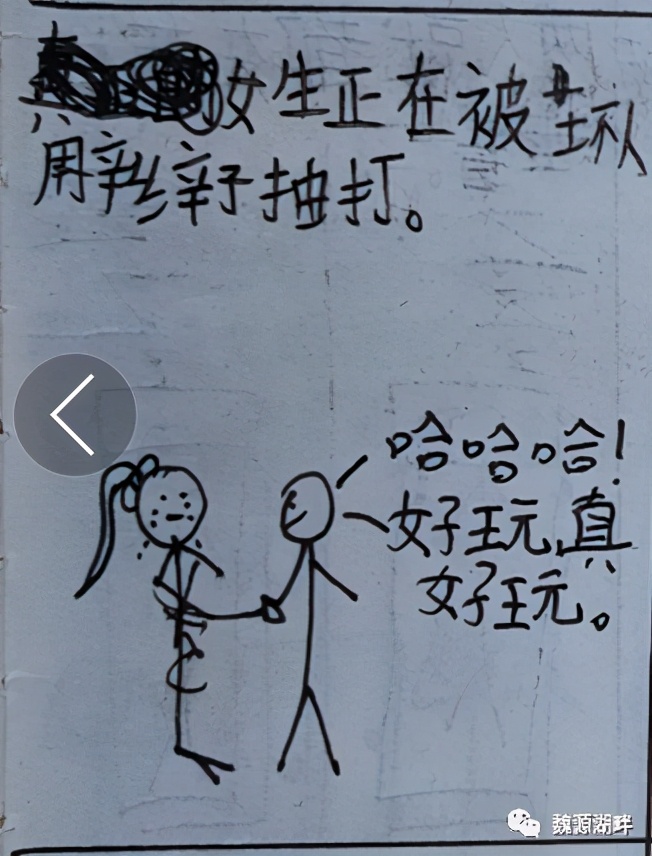 女生正在被坏人
用辫子抽打。
哈哈哈!
好玩,真
好玩。
魏源湖畔